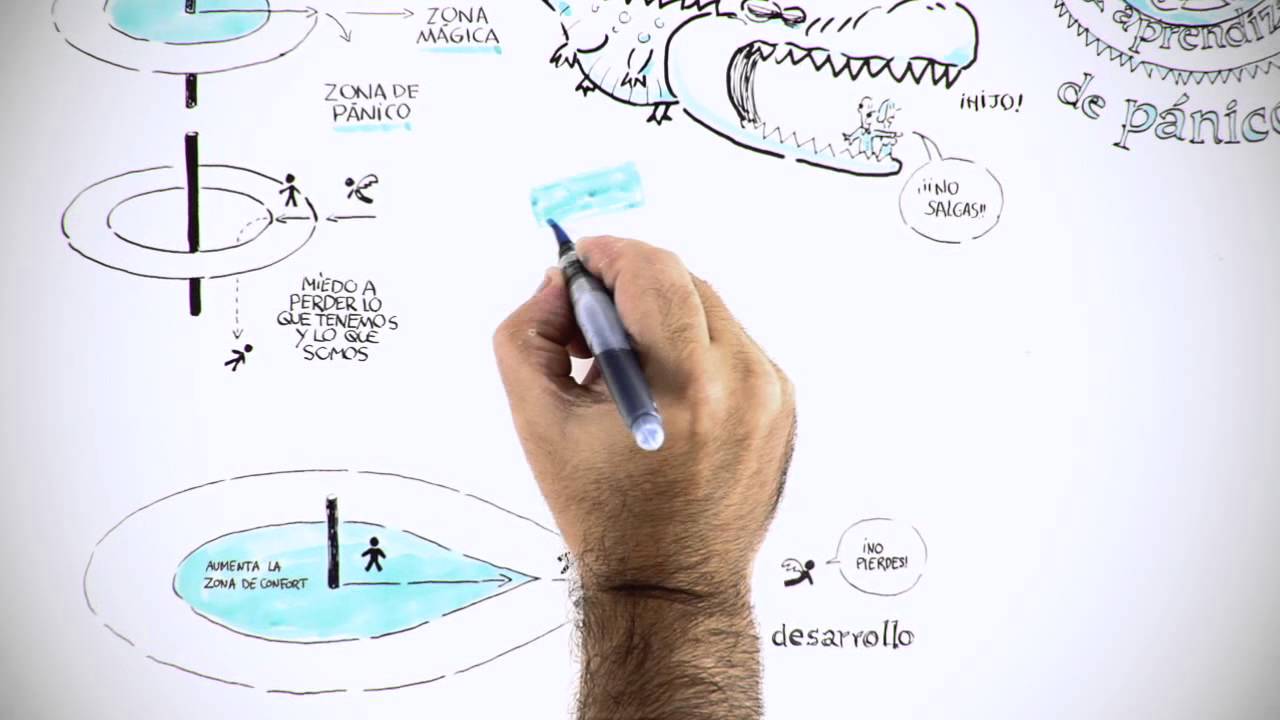 ZONA
MÁGICA
ZONA DE
PÁNICO
¡HIJO!
¡¡NO
SALGAS!!
aprendiz
de pánico
MIEDO A
PERDER LO
QUE TENEMOS
Y LO QUE
SOMOS
AUMENTA LA
ZONA DE CONFORT
¡NO
PIERDES!
desarrollo